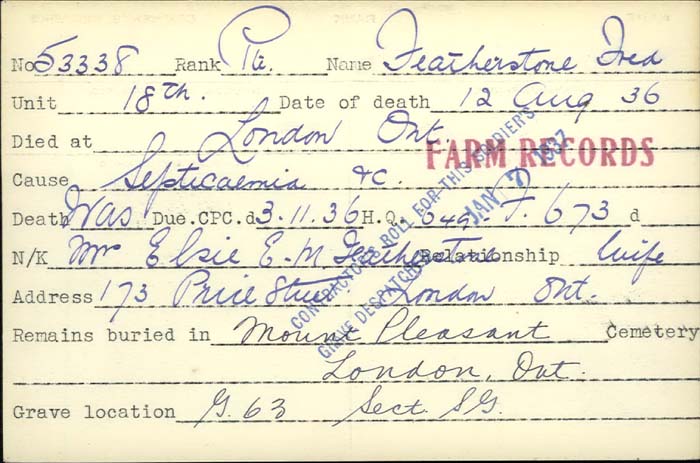 No 53338 Rank Pte. Name Featherstone Fred
Unit 18th. Date of death 12 Aug 36
Died at London Ont.
FARM RECORDS
Cause Septicaemia &c.
Death Was Due. CPC. d 3.11.36 H.Q. 649 F. 673 d
N/K Mrs Elsie E. M Featherstone Relationship Wife
Address 173 Price Street London Ont.
Remains buried in Mount Pleasant Cemetery
London, Ont.
Grave location G. 63 Sect. SG.
CONTRACTORS ROLL FOR THIS SOLDIER'S
GRAVE DESPATCHED JAN 7 1937